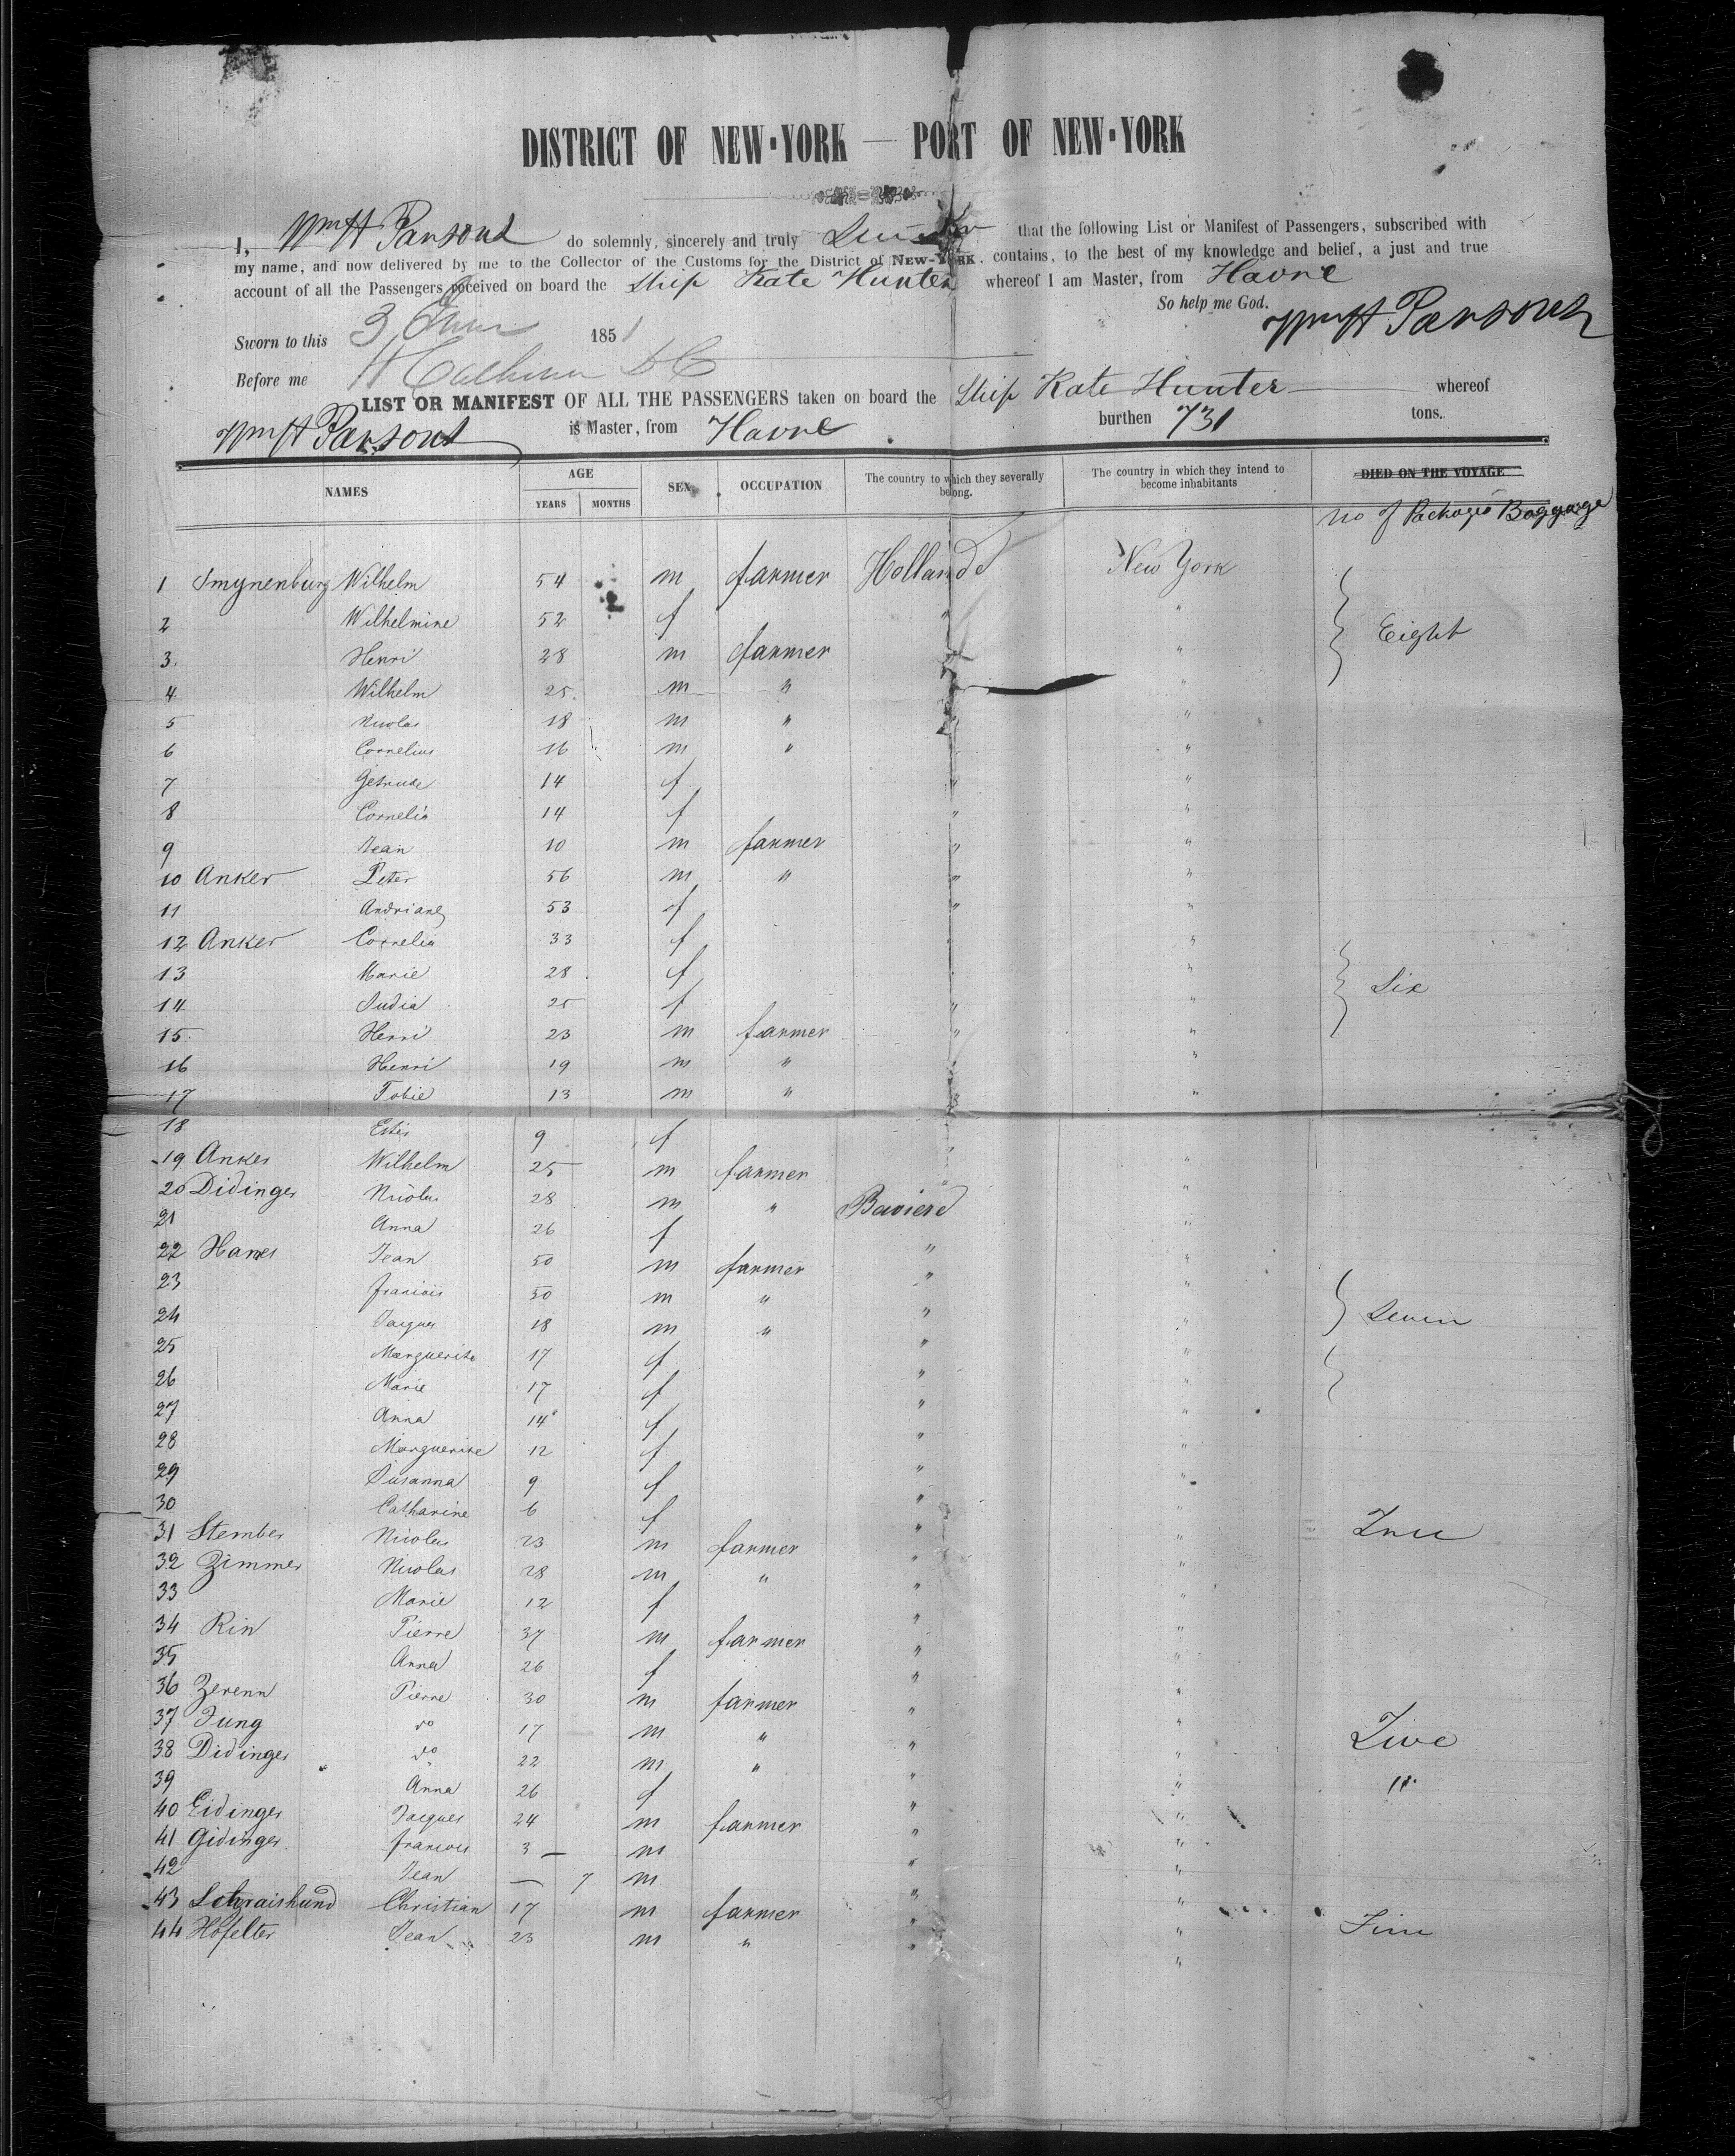 DISTRICT OF NEW-YORK — PORT OF NEW-YORK
I, Wm H Parsons do solemnly, sincerely and truly that the following List or Manifest of Passengers, subscribed with
my name, and now delivered by me to the Collector of the Customs for the District of NEW-YORK, contains, to the best of my knowledge and belief, a just and true
account of all the Passengers received on board the Ship Kate Hunter whereof I am Master, from Havre
So help me God.
Sworn to this 3 1851 Wm H Parsons
Before me H Calhoun D C
LIST OR MANIFEST OF ALL THE PASSENGERS taken on board the Ship Kate Hunter whereof
Wm H Parsons is Master, from Havre burthen 731 tons.
NAMES AGE YEARS MONTHS SEX OCCUPATION The country to which they severally belong. The country in which they intend to become inhabitants DIED ON THE VOYAGE
no of Packages Baggage
1 Smynenburg Wilhelm 54 m farmer Holland New York
2 Wilhelmine 52 f " " Eight
3. Henri 28 m farmer "
4 Wilhelm 25 m " "
5 Nicolas 18 m " " "
6 Cornelius 16 m " "
7 Getrude 14 f " "
8 Cornelia 14 f " "
9 Jean 10 m farmer " "
10 Anker Peter 56 m " " "
11 Andriane 53 f " "
12 Anker Cornelia 33 f "
13 Marie 28 f " Six
14 Judia 25 f " "
15 Henri 23 m farmer " "
16 Henri 19 m " "
17 Tobie 13 m " "
18 Estis 9 f
19 Anker Wilhelm 25 m farmer " "
20 Didinger Nicolas 28 m " Baviere "
21 Anna 26 f " "
22 Hames Jean 50 m farmer " "
23 francois 50 m " " "
24 Jacques 18 m " " " Seven
25 Marguerite 17 f " "
26 Marie 17 f " "
27 Anna 14 f " "
28 Marguerite 12 f " "
29 Susanna 9 f " "
30 Catharine 6 f " "
31 Stember Nicolas 23 m farmer " "
32 Zimmer Nicolas 28 m " " "
33 Marie 12 f " "
34 Rin Pierre 37 m farmer " "
35 Anna 26 f " "
36 Zerenn Pierre 30 m farmer " "
37 Jung do 17 m " " "
38 Didinger do 22 m " " "
39 Anna 26 f " " "
40 Eidinger Jacques 24 m farmer " "
41 Gidinger francois 3 — m " "
42 Jean — 7 m " "
43 Christian 17 m farmer " "
44 Hofelter Jean 23 m " " "